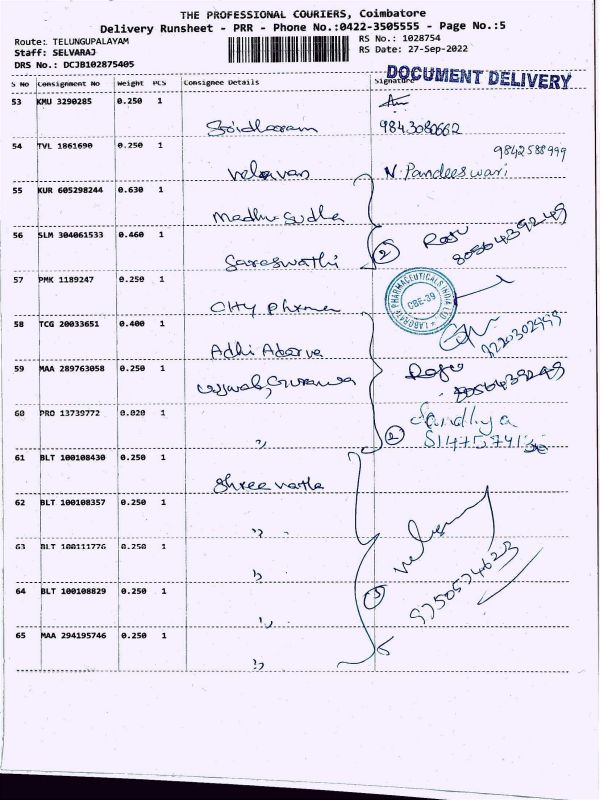 THE PROFESSIONAL COURIERS, Coimbatore
Delivery Runsheet - PRR - Phone No.:0422-3505555 - Page No.:5
Route: TELUNGUPALAYAM
Staff: SELVARAJ
DRS No.: DCJB102875405
RS No.: 1028754
RS Date: 27-Sep-2022
DOCUMENT DELIVERY
S No Consignment No Weight PCS Consignee Details Signature
53 KMU 3290285 0.250 1
Sridharam 9843080662
54 TVL 1861690 0.250 1
9842588999
velavan N. Pandeeswari
55 KUR 605298244 0.630 1
Madhu sudha
56 SLM 304061533 0.460 1
Raju
Saraswathi 2
57 PMK 1189247 0.250 1
LABORATE PHARMACEUTICALS INDIA LTD. CBE-39
City Pharma
58 TCG 20033651 0.400 1
Adhi
59 MAA 289763058 0.250 1
Raju
60 PRO 13739772 0.020 1
Sandhya
" 2
61 BLT 100108430 0.250 1
Shree vatla
62 BLT 100108357 0.250 1
"
63 BLT 100111776 0.250 1
"
64 BLT 100108829 0.250 1
9750574623
"
65 MAA 294195746 0.250 1
"